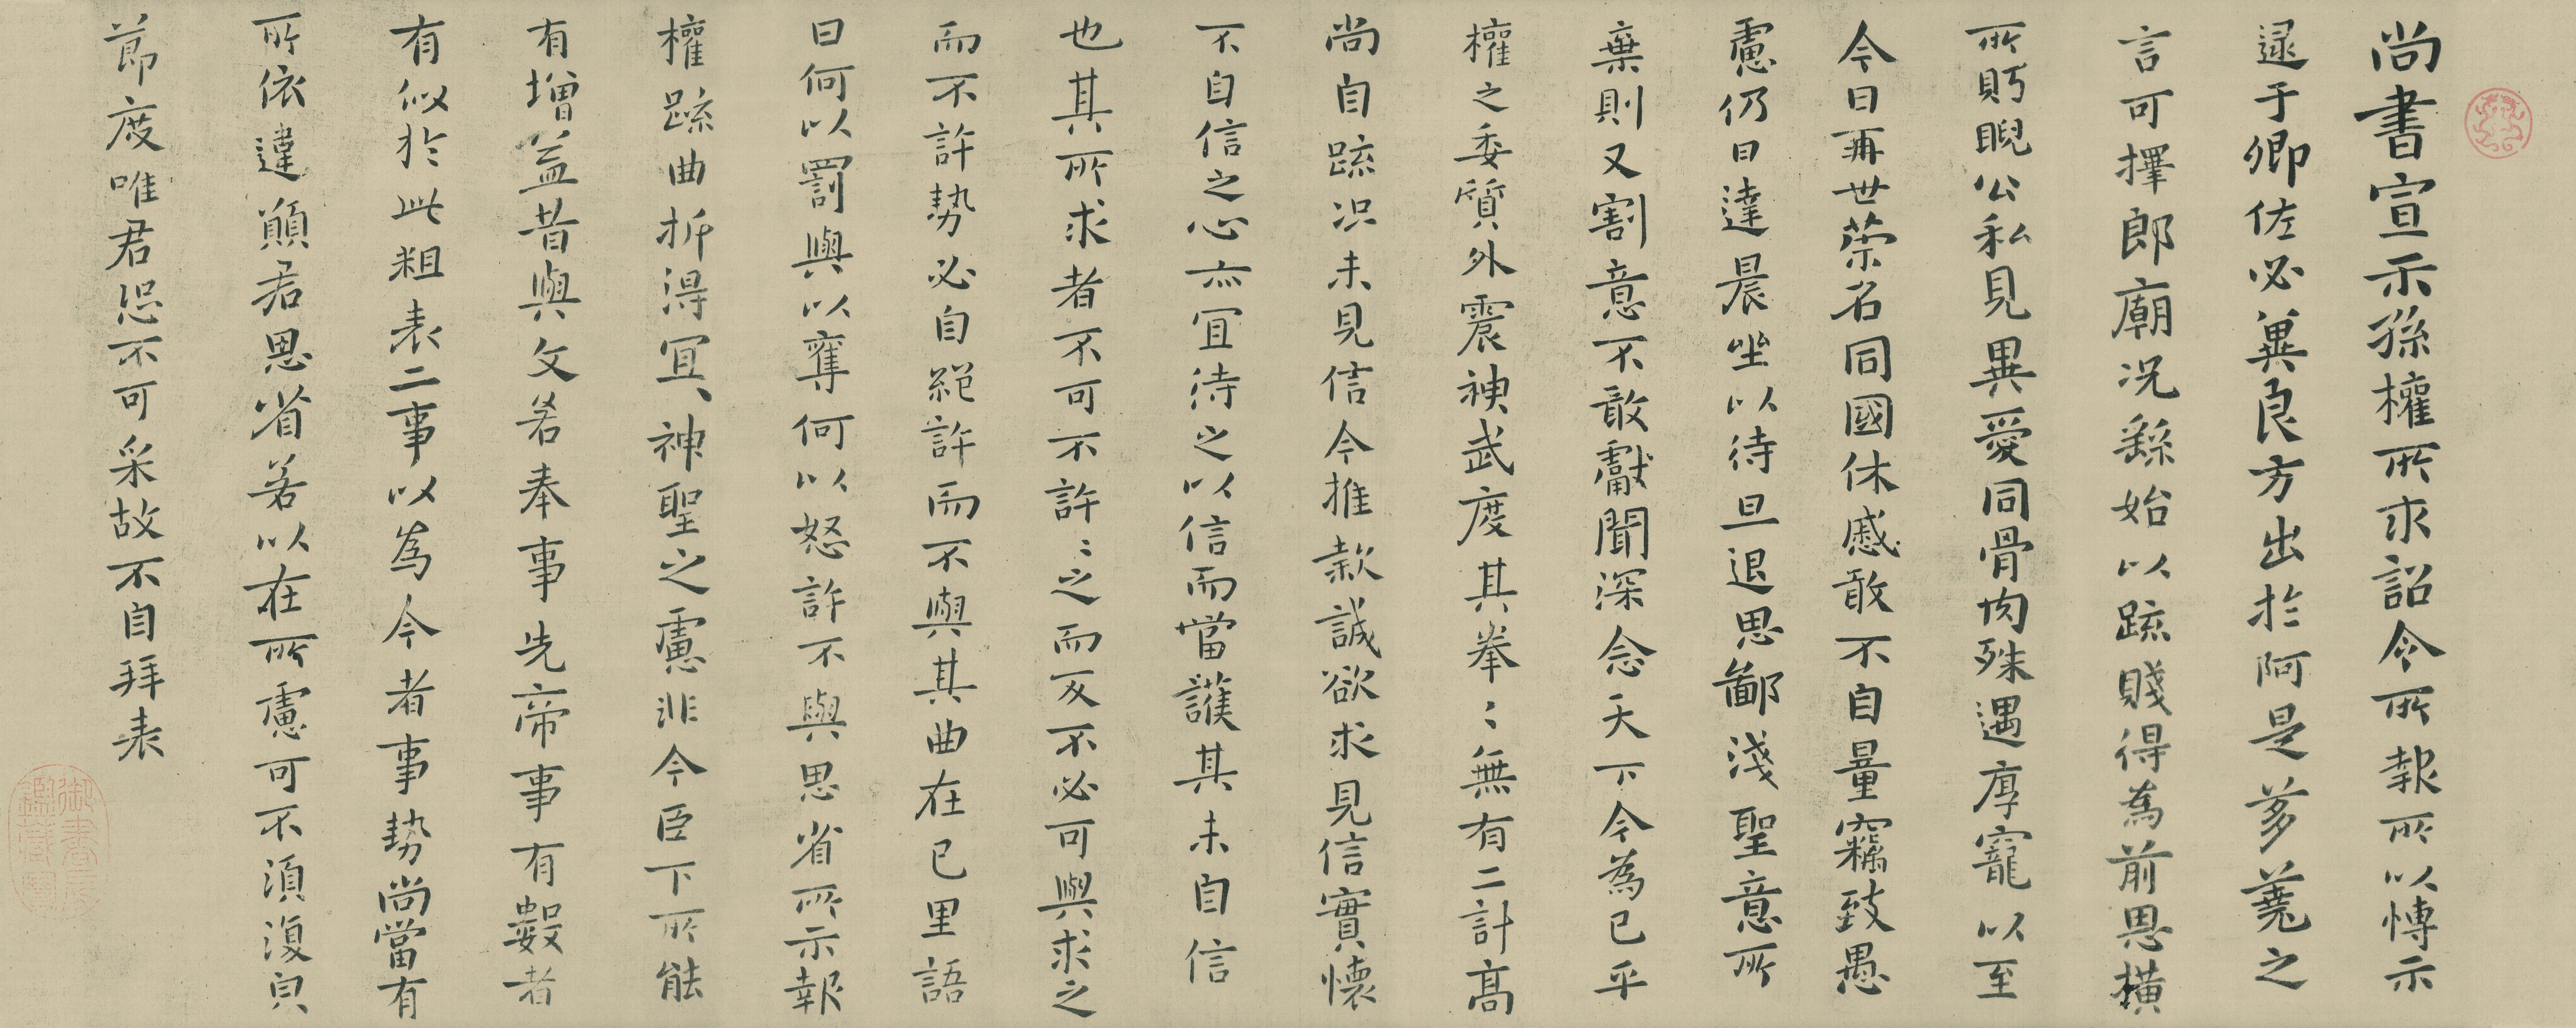 尚書宣示孫權所求詔令所報所以博示
逮于卿佐必冀良方出於阿是芻蕘之
言可擇郎廟況繇始以疏賤得為前恩橫
所眄睨公私見異愛同骨肉殊遇厚寵以至
今日再世榮名同國休慼敢不自量竊致愚
慮仍日達晨坐以待旦退思鄙淺聖意所
棄則又割意不敢獻聞深念天下今為已平
權之委質外震神武度其拳〻無有二計高
尚自疏況未見信今推款誠欲求見信實懷
不自信之心亦宜待之以信而當護其未自信
也其所求者不可不許〻之而反不必可與求之
而不許勢必自絕許而不與其曲在己里語
曰何以罰與以奪何以怒許不與思省所示報
權疏曲折得宜神聖之慮非今臣下所能
有增益昔與文若奉事先帝事有數者
有似於此粗表二事以為今者事勢尚當有
所依違願君思省若以在所慮可不須復貝
節度唯君恐不可采故不自拜表